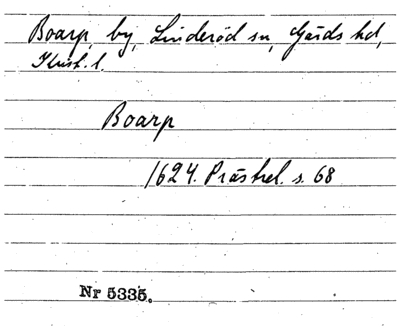 Boarp, by, Linderöd sn, Gärds hd,
Krist. l.
Boarp
1624. Prästrel. s. 68
Nr 5335.